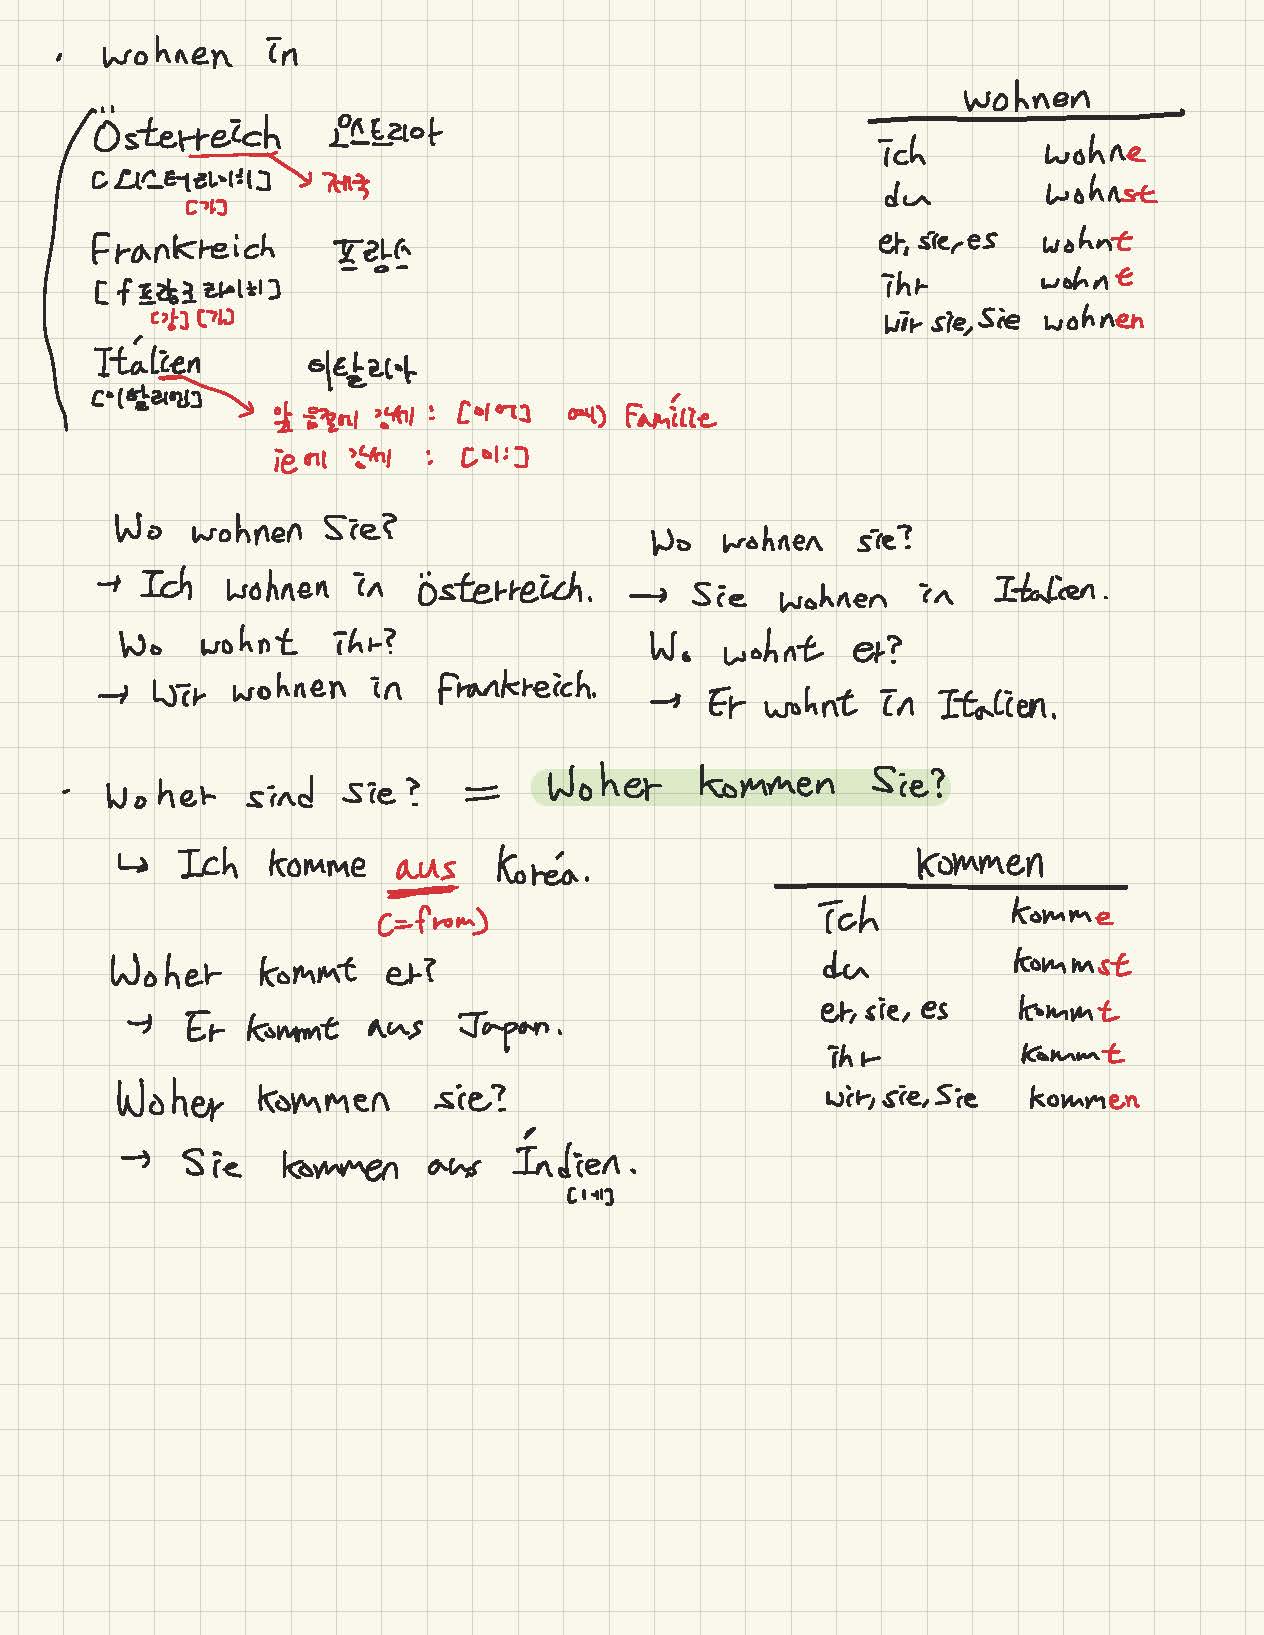 · wohnen in
Österreich 오스트리아
[외스터라이히] → 제국
[강]
Frankreich 프랑스
[f프랑크라이히]
[강] [강]
Itálien 이탈리아
[이탈리엔]
앞 음절에 강세 : [이에] 예) Famílie
ie에 강세 : [이:]
wohnen
ich wohne
du wohnst
er, sie, es wohnt
ihr wohne
wir sie, Sie wohnen
Wo wohnen Sie?
→ Ich wohnen in Österreich.
Wo wohnt ihr?
→ Wir wohnen in Frankreich.
Wo wohnen sie?
→ Sie wohnen in Italien.
Wo wohnt er?
→ Er wohnt in Italien.
· Woher sind sie? = Woher kommen Sie?
↳ Ich komme aus Koréa.
(=from)
Woher kommt er?
→ Er kommt aus Japan.
Woher kommen sie?
→ Sie kommen aus Índien.
kommen
ich komme
du kommst
er, sie, es kommt
ihr kommt
wir, sie, Sie kommen